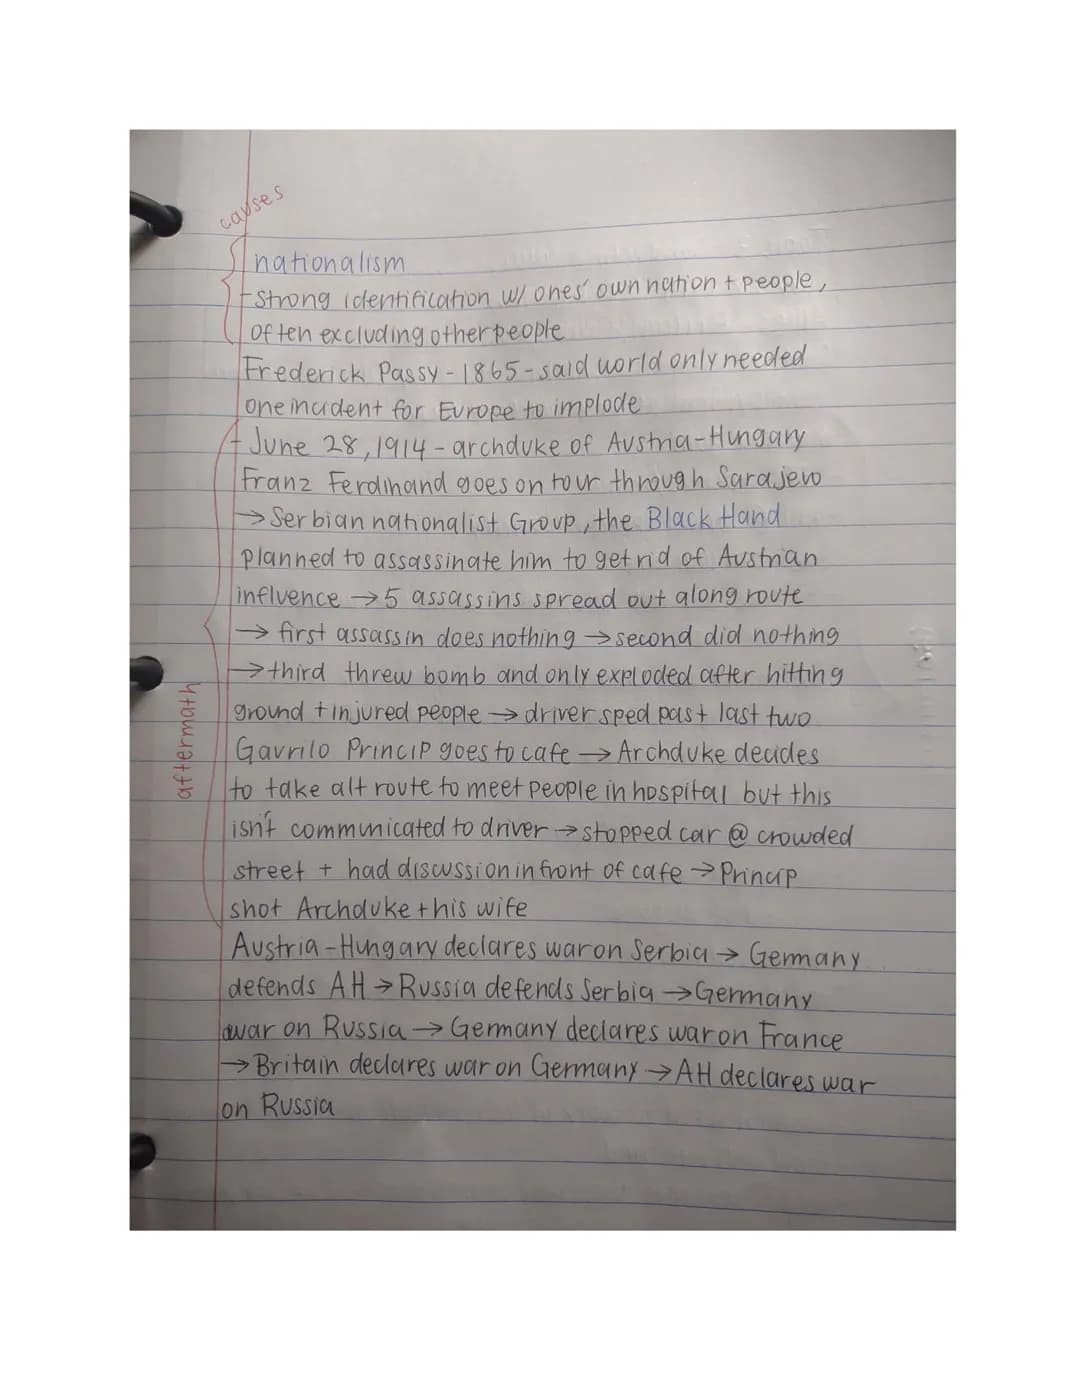 causes
nationalism
-strong identification w/ ones' own nation + people,
often excluding other people
Frederick Passy - 1865 - said world only needed
one incident for Europe to implode
- June 28, 1914 - archduke of Austria-Hungary
Franz Ferdinand goes on tour through Sarajevo
→ Serbian nationalist Group, the Black Hand
planned to assassinate him to get rid of Austrian
influence → 5 assassins spread out along route
→ first assassin does nothing → second did nothing
→ third threw bomb and only exploded after hitting
ground + injured people → driver sped past last two
Gavrilo Princip goes to cafe → Archduke decides
to take alt route to meet people in hospital but this
isn't communicated to driver → stopped car @ crowded
street + had discussion in front of cafe → Princip
shot Archduke + his wife
aftermath
Austria-Hungary declares war on Serbia → Germany
defends AH → Russia defends Serbia → Germany
war on Russia → Germany declares war on France
→ Britain declares war on Germany → AH declares war
on Russia